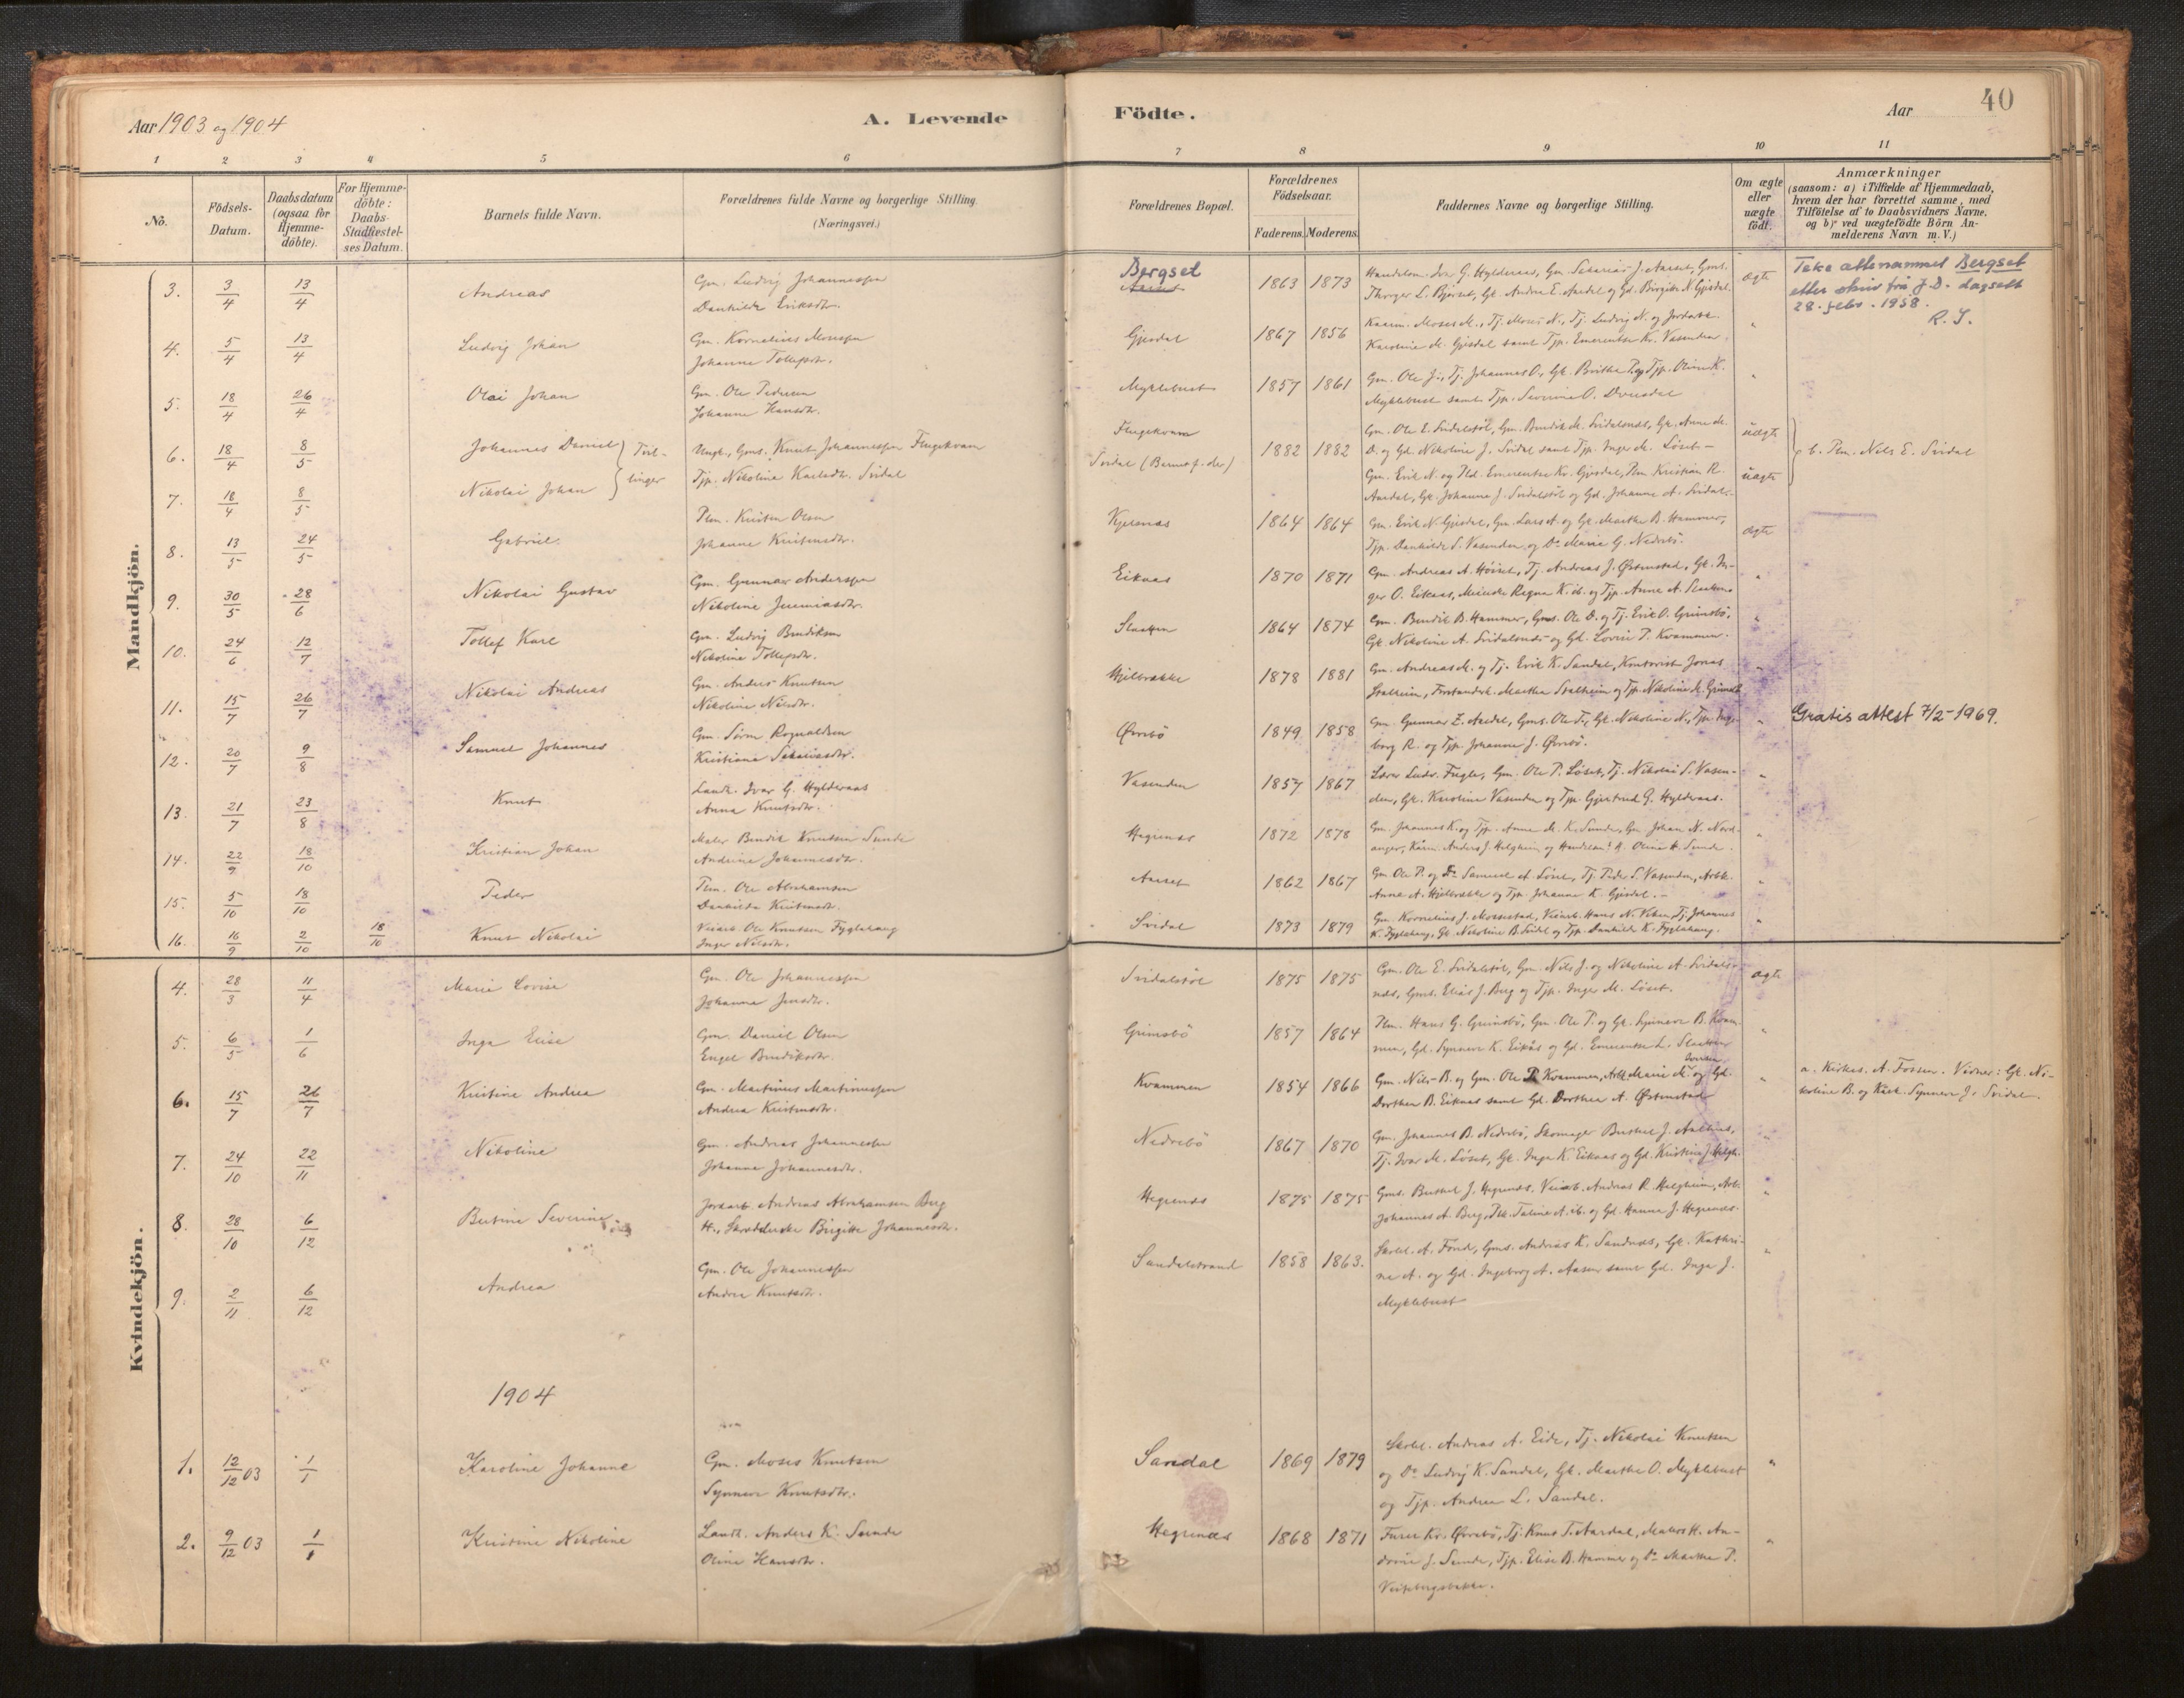 Aar 1903 og 1904
A. Levende
Födte.
Aar
40
1 2 3 4 5 6 7 8 9 10 11
No.
Födsels-Datum.
Daabsdatum (ogsaa for Hjemme-döbte).
For Hjemme-döbte: Daabs-Stadfæstel-ses Datum.
Barnets fulde Navn.
Forældrenes fulde Navne og borgerlige Stilling.
(Næringsvei.)
Forældrenes Bopæl.
Forældrenes Födselsaar.
Faderens. Moderens.
Faddernes Navne og borgerlige Stilling.
Om ægte eller uægte födt.
Anmærkninger
(saasom: a) i Tilfælde af Hjemmedaab,
hvem der har forrettet samme, med
Tilföielse af to Daabsvidners Navne,
og b) ved uægtefödte Börn An-
melderens Navn m. V.)
Mandkjön.
3. 3/4 13/4 Andreas
Gm. Ludvig Johannessen
Dankilde Eriksdtr.
Bergset
Aarset
1863 1873
Handelsm. Ivar G. Hylderaas, Gm. Sakarias J. Aarset, Gms.
Thorger L. Bjørset, Gk. Andrea E. Aardal og Gd. Birgitte N. Gjesdal.
ægte
Teke ettenamnet Bergset
etter skriv frå J.D. dagsett
28. febr. 1958.
R. S.
4. 5/4 13/4 Ludvig Johan
Gm. Kornelius Mosessen
Johanne Tollefsdtr.
Gjesdal 1867 1856
Kaarm. Moses M., Tj. Moses N., Tj. Ludvig N. og Jordarb.
Karoline M. Gjesdal samt Tjp. Emerentse Kr. Vasenden.
"
5. 18/4 26/4 Olai Johan
Gm. Ole Pedersen
Johanne Hansdtr.
Myklebust 1857 1861
Gm. Ole J., Tj. Johannes O., Gk. Brithe P. og Tjp. Oline K.
Myklebust samt Tjp. Severine O. Dvergsdal
"
6. 18/4 8/5 Johannes Daniel } Tvil-
Ungk., Gms. Knut Johannessen Flugekvam
Flugekvam
1882 1882
Gm. Ole E. Svidalstøl, Gm. Bendik M. Svidalsnæs, Gk. Anne M.
D. og Gd. Nikoline J. Svidal samt Tjp. Inger M. Løset –
uægte
b. Plm. Nils E. Svidal
7. 18/4 8/5 Nikolai Johan } linger
Tjp. Nikoline Karlsdtr. Svidal
Svidal (Barnet f. der)
Gm. Erik N. og Pld. Emerentse Kr. Gjesdal, Plm. Kristian R.
Aardal, Gk. Johanne J. Svidalstøl og Gd. Johanne A. Svidal.
uægte
8. 13/5 24/5 Gabriel.
Plm. Kristen Olsen
Johanne Kristensdtr.
Kjelsnæs 1864 1864
Gm. Erik N. Gjesdal, Gm. Lars A. og Gk. Marthe B. Hammer,
Tjp. Dankilde S. Vasenden og Do Marie G. Nedrebø.
ægte
9. 30/5 28/6 Nikolai Gustav
Gm. Gunnar Anderssen
Nikoline Jeremiasdtr.
Eikaas 1870 1871
Gm. Andreas A. Høiset, Tj. Andreas J. Østenstad, Gk. In-
ger O. Eikaas, Meierske Ragna K. ib. og Tjp. Anne A. Slaatten.
"
10. 24/6 12/7 Tollef Karl
Gm. Ludvig Bendiksen
Nikoline Tollefsdtr.
Slaatten 1864 1874
Gm. Bendik B. Hammer, Gms. Ole D. og Tj. Erik O. Grimsbø,
Gk. Nikoline A. Svidalsnæs og Gd. Lovise P. Kvammen.
"
11. 15/7 26/7 Nikolai Andreas
Gm. Anders Knutsen
Nikoline Nilsdtr.
Hjelbrække 1878 1881
Gm. Andreas M. og Tj. Erik K. Sandal, Kontorist Jonas
Stalheim, Forstanderk. Marthe Stalheim og Tjp. Nikoline M. Grimsb.
"
12. 20/7 9/8 Samuel Johannes
Gm. Søren Rognaldsen
Kristiane Sakariasdtr.
Øvrebø 1849 1858
Gm. Gunnar E. Aardal, Gms. Ole T., Gk. Nikoline N., Tjp. Inge-
borg R. og Tjp. Johanne J. Øvrebø.
"
Gratis attest 7/2-1969.
13. 21/7 23/8 Knut
Landh. Ivar G. Hylderaas
Anna Knutsdtr.
Vasenden 1857 1867
Lærer Ludv. Fugle, Gm. Ole P. Løset, Tj. Nikolai S. Vasen-
den, Gk. Karoline Vasenden og Tjp. Gjertrud G. Hylderaas.
"
14. 22/9 18/10 Kristian Johan
Maler Bendik Knutsen Sunde
Andrine Johannesdtr.
Hegrenæs 1872 1878
Gm. Johannes K. og Tjp. Anne M. K. Sunde, Gm. Johan N. Nord-
anger, Kaarm. Anders J. Helgheim og Handelsm.s K. Oline H. Sunde.
"
15. 5/10 18/10 Peder
Plm. Ole Abrahamsen
Dankilde Kristensdtr.
Aarset 1862 1867
Gm. Ole P. og Do Samuel A. Løset, Tj. Peder S. Vasenden, Arbk.
Anna A. Hjelbrække og Tjp. Johanne K. Gjesdal. –
"
16. 16/9 2/10 18/10 Knut Nikolai
Veiarb. Ole Knutsen Fyglehaug
Inger Nilsdtr.
Svidal 1873 1879
Gm. Kornelius J. Mossestad, Veiarb. Hans N. Viken, Tj. Johannes
K. Fyglehaug, Gk. Nikoline B. Svidal og Tjp. Dankilde K. Fyglehaug.
"
Kvindekjön.
4. 28/3 11/4 Marie Lovise
Gm. Ole Johannessen
Johanne Jensdtr.
Svidalstøl 1875 1875
Gm. Ole E. Svidalstøl, Gm. Nils J. og Nikoline A. Svidals-
næs, Gms. Elias J. Berg og Tjp. Inger M. Løset.
ægte
5. 6/5 1/6 Inga Elise
Gm. Daniel Olsen
Engel Bendiksdtr.
Grimsbø 1857 1864
Plm. Hans G. Grimsbø, Gm. Ole P. og Gk. Synneve B. Kvam-
men, Gd. Synneve K. Eikås og Gd. Emerentse L. Slaatten
"
6. 15/7 26/7 Kristine Andrea
Gm. Martinus Martinussen
Andrea Kristensdtr.
Kvammen 1854 1866
Gm. Nils B. og Gm. Ole P. Kvammen, Arbk. Marie M. og Gd.
Dorthea B. Eikaas samt Gd. Dorthea A. Østenstad
"
a. Kirkes. A. Fossen. Vidner: Gk. Ni-
koline B. og Kaark. Synneve J. Svidal.
7. 24/10 22/11 Nikoline
Gm. Andreas Johannessen
Johanne Johannesdtr.
Nedrebø 1867 1870
Gm. Johannes B. Nedrebø, Skomager Bertel J. Aalhus,
Tj. Ivar M. Løset, Gk. Inga K. Eikaas og Gd. Kristine J. Helgh.
"
8. 28/10 6/12 Bertine Severine
Jordarb. Andreas Abrahamsen Berg
H., Skrædderske Birgitte Johannesdtr.
Hegrenæs 1875 1875
Gms. Bertel J. Hegrenæs, Veiarb. Andreas R. Helgheim, Arb.
Johannes A. Berg, Plk. Taline A. ib. og Gd. Hanna J. Hegrenæs.
"
9. 2/11 6/12 Andrea
Gm. Ole Johannessen
Andrea Knutsdtr.
Sandalstrand 1858 1863.
Skolel. A. Fond, Gms. Andreas K. Sandnæs, Gk. Kathri-
ne A. og Gd. Ingeborg A. Aasen samt Gd. Inga J.
Myklebust
"
1904
1. 12/12 03 1/1 Karoline Johanne
Gm. Moses Knutsen
Synneve Knutsdtr.
Sandal 1869 1879
Skolel. Andreas A. Eide, Tj. Nikolai Knutsen
og Do Ludvig K. Sandal, Gk. Marthe O. Myklebust
og Tjp. Andrea L. Sandal.
"
2. 9/12 03 1/1 Kristine Nikoline
Landh. Anders K. Sunde
Oline Hansdtr.
Hegrenæs 1868 1871
Furer Kr. Øvrebø, Tj. Knut T. Aardal, Malers H. An-
drine J. Sunde, Tjp. Elise B. Hammer og Do Marthe P.
"